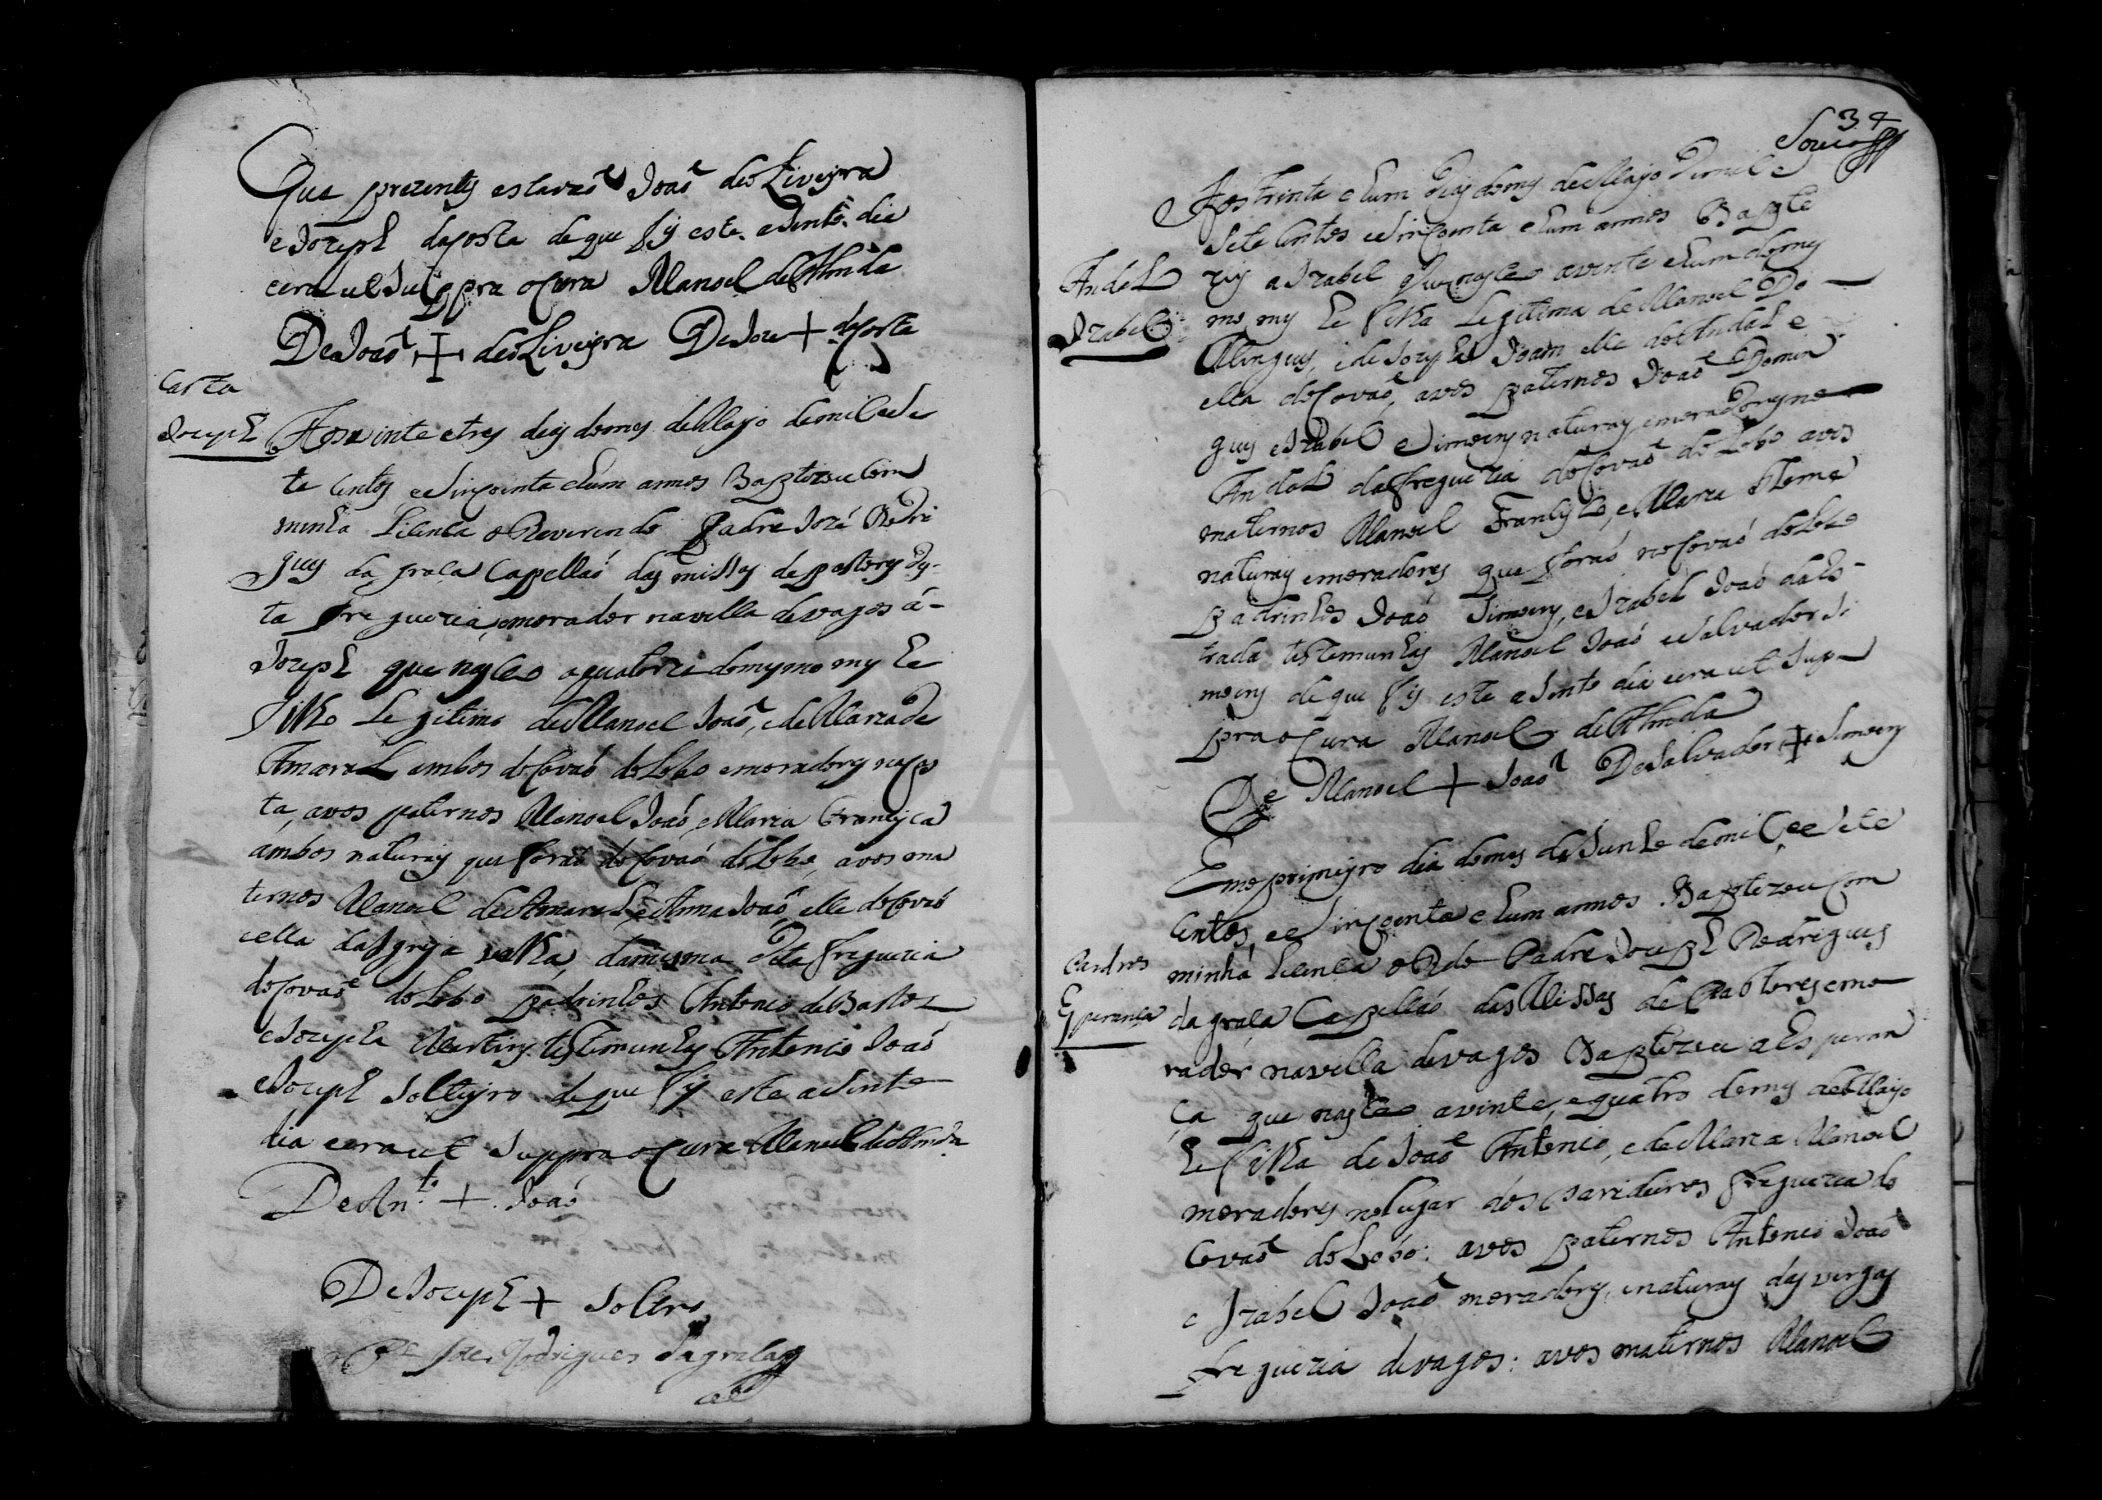 Que prezentes estavaõ Joaõ de oLiveyra
e Jozeph da Costa de que fis este asento. dia
era ut Supra o Cura Manoel de Almda
De Joaõ + de oLiveyra De Joze + da Costa
Carta
Jozeph
Aos vinte e tres dias do mes de Mayo de mil e Se
te Centos e Sincoenta e hum annos Baptizou Com
minha Licenca o Reverendo Padre Jozé Rodri
gues da graca Capellaõ das missas de pastores des
ta freguezia, e morador na villa de vagos á
Jozeph que nasceo a quatorze do mesmo mes he
filho Legitimo de Manoel Joaõ, e de Maria de
Amaral ambos do Covaõ do Lobo e moradores na Car
ta, avos paternos Manoel Joaõ, e Maria Francisca
ambos naturais que foraõ do Covaõ do Lobo, avos ma
ternos Manoel de Amaral, e Anna Joaõ, elle do Covaõ
e ella da Igreja velha, da mesma dita freguezia
do Covaõ do Lobo padrinhos Antonio de Bastos
e Jozepha Martins, testemunhas Antonio Joaõ
e Jozeph Solteyro de que fis este asento
dia e era ut Suppra o Cura Manoel de Almda
De Anto. + Joaõ
De Jozeph + Soltro
Pe Joze Rodrigues da graca
34
Aos trinta e hum dias do mes de Mayo de mil e
Sete Centos e Sincoenta e hum annos Bapte
Andal
Izabel
zei a Izabel que nasceo a vinte e hum do mes
mo mes he filha Legitima de Manoel Do
mingues, e de Jozepha Joam elle do Andal e
ella do Covaõ, avos paternos Joaõ Domin
gues e Izabel Simoens naturais, e moradores no
Andal da freguezia do Covaõ do Lobo avos
maternos Manoel Francisco, e Maria Thome
naturais e moradores que foraõ no Covaõ do Lobo
padrinhos Joaõ Simoens, e Izabel Joaõ da Es
trada testemunhas Manoel Joaõ e Salvador Si
moens de que fis este asento dia e era ut Sup
pra o Cura Manoel de Almda
De Manoel + Joaõ De Salvador + Simoens
Em o primeyro dia do mes de Junho de mil e Sete
Centos, e Sincoenta e hum annos Baptizou Com
Pardros
Esperança
minha Licenca o Rdo Padre Jozeph Rodrigues
da graca Capellaõ das Missas de Pastores e mo
rador na villa de vagos Baptizou a Esperan
ça que nasceo a vinte, e quatro do mes de Mayo
he filha de Joaõ Antonio, e de Maria Manoel
moradores no Lugar dos Pardeiros freguezia do
Covaõ do Lobo: avos paternos Antonio Joaõ
e Izabel Joaõ moradores, e naturais das vergas
freguezia de vagos: avos maternos Manoel